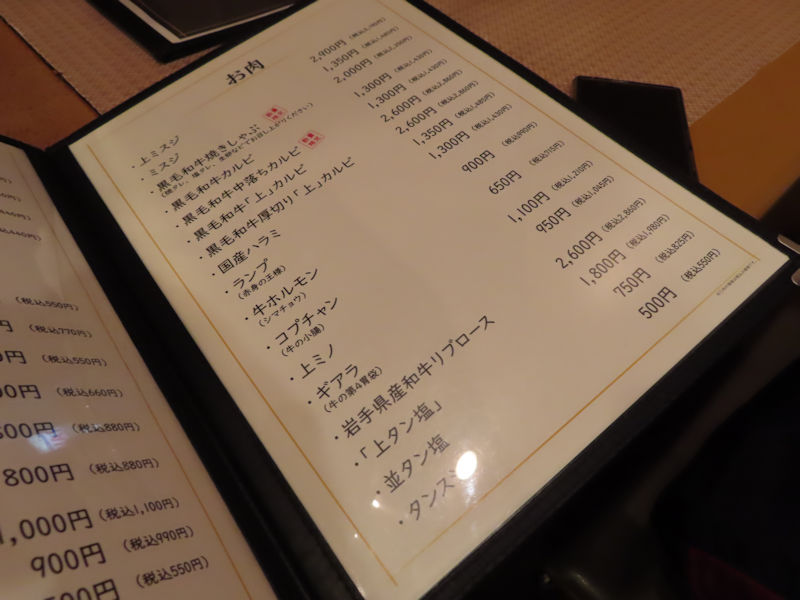 お肉
・上ミスジ 2,900円
・ミスジ 1,350円
・黒毛和牛焼きしゃぶ 2,000円
・黒毛和牛カルビ 1,300円 (税込1,430円)
・黒毛和牛中落ちカルビ 1,300円 (税込1,430円)
・黒毛和牛「上」カルビ 2,600円 (税込2,860円)
・黒毛和牛厚切り「上」カルビ 2,600円 (税込2,860円)
・国産ハラミ 1,350円 (税込1,485円)
・ランプ 1,300円 (税込1,430円)
(赤身の王様)
・牛ホルモン 900円 (税込990円)
(シマチョウ)
・コプチャン 650円 (税込715円)
(牛の小腸)
・上ミノ 1,100円 (税込1,210円)
・ギアラ 950円 (税込1,045円)
(牛の第4胃袋)
・岩手県産和牛リブロース 2,600円 (税込2,860円)
・「上タン塩」 1,800円 (税込1,980円)
・並タン塩 750円 (税込825円)
・タンス 500円 (税込550円)
(税込550円)
円 (税込770円)
円 (税込550円)
00円 (税込660円)
円 (税込880円)
800円 (税込880円)
1,000円 (税込1,100円)
900円 (税込990円)
円 (税込550円)